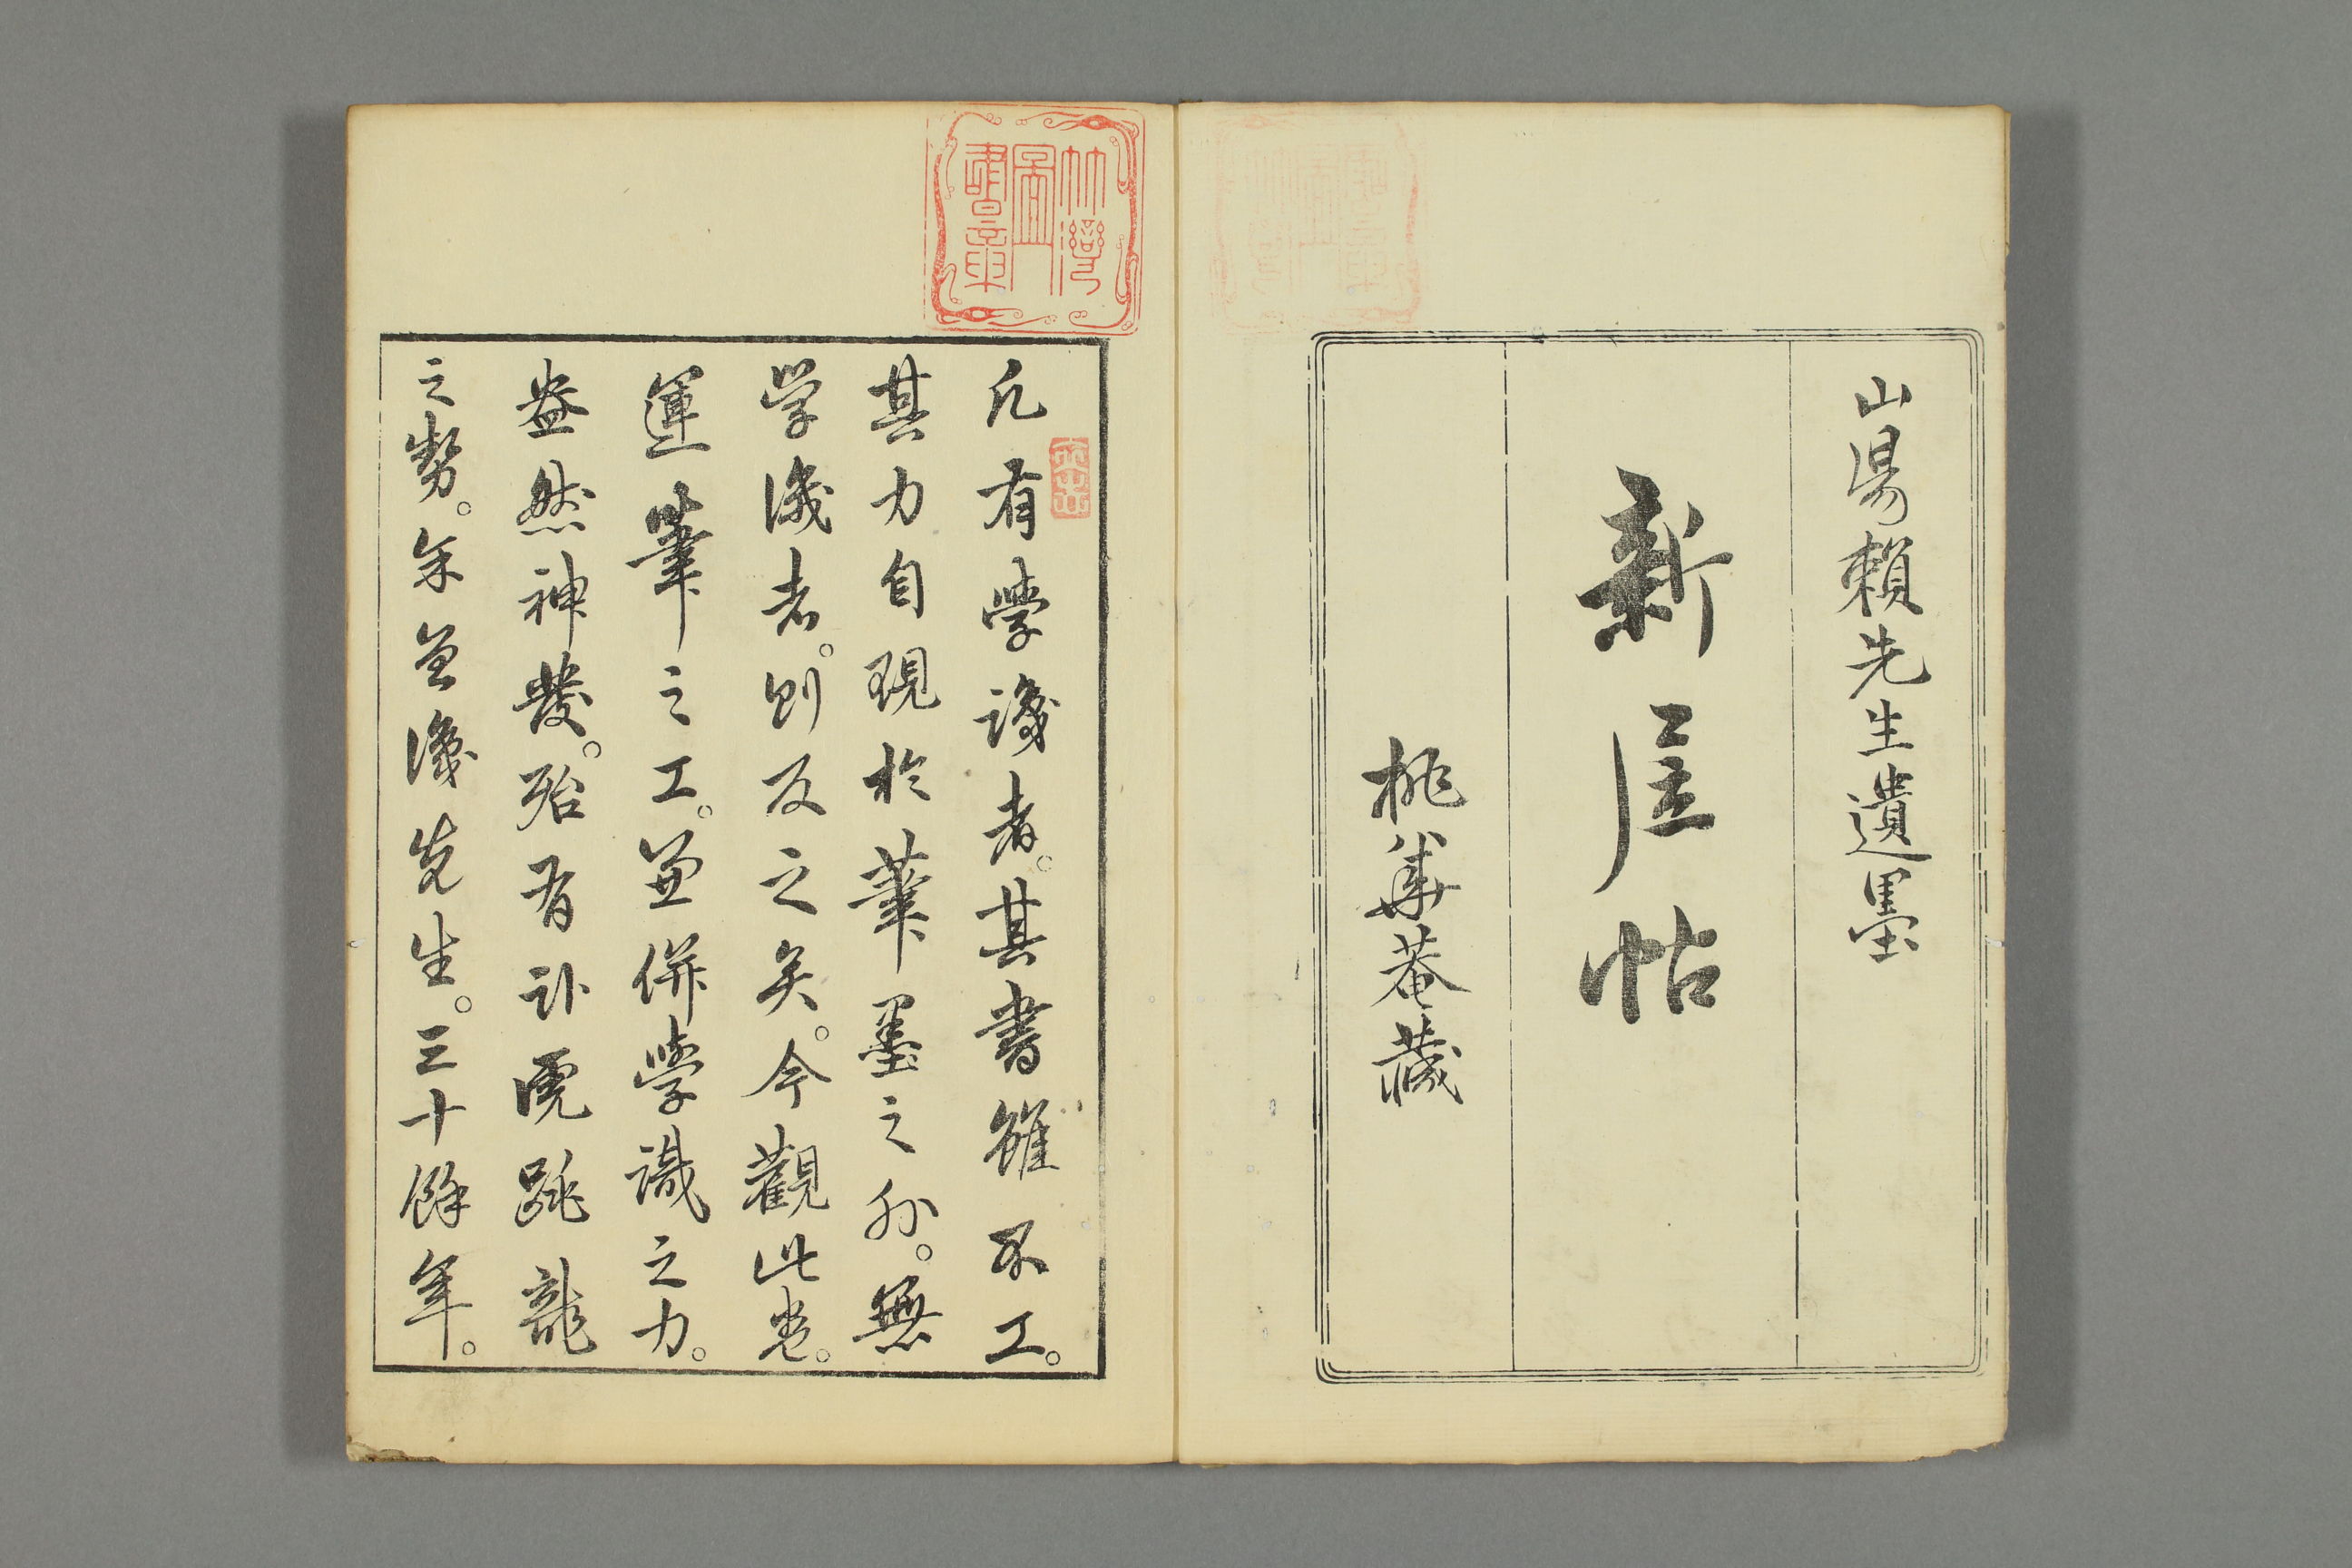 山陽賴先生遺墨
新居帖
桃華菴藏
凡有學識者。其書雖不工。
其力自現於筆墨之外。無
学識者。則反之矣。今觀此卷。
運筆之工。併學識之力。
盎然神發。殆有臥虎跳龍
之勢。余曾識先生。三十餘年。